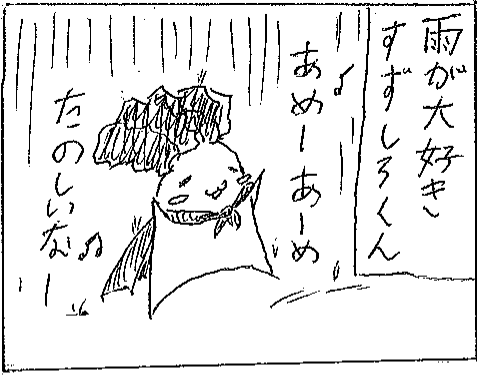 雨が大好き
すずしろくん
♪あめーあーめ
たのしいなー♫